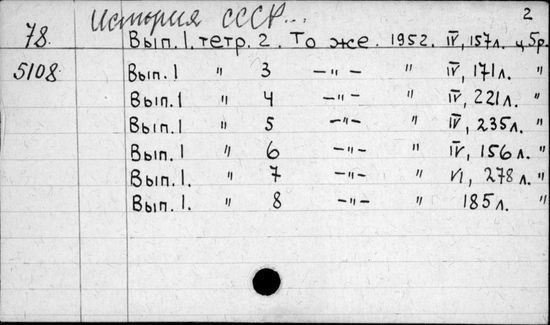 История СССР... 2
78. Вып.1. тетр. 2. То же. 1952. IV, 157л. ц. 5р.
5108 Вып.1 " 3 –"– " IV, 171л. "
Вып.1 " 4 –"– " IV, 221л. "
Вып.1 " 5 –"– " IV, 235л. "
Вып.1 " 6 –"– " IV, 156л. "
Вып.1. " 7 –"– " VI, 278л. "
Вып.1. " 8 –"– " 185л. "